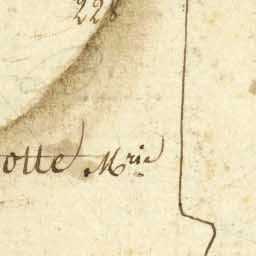 228
otte M.rie